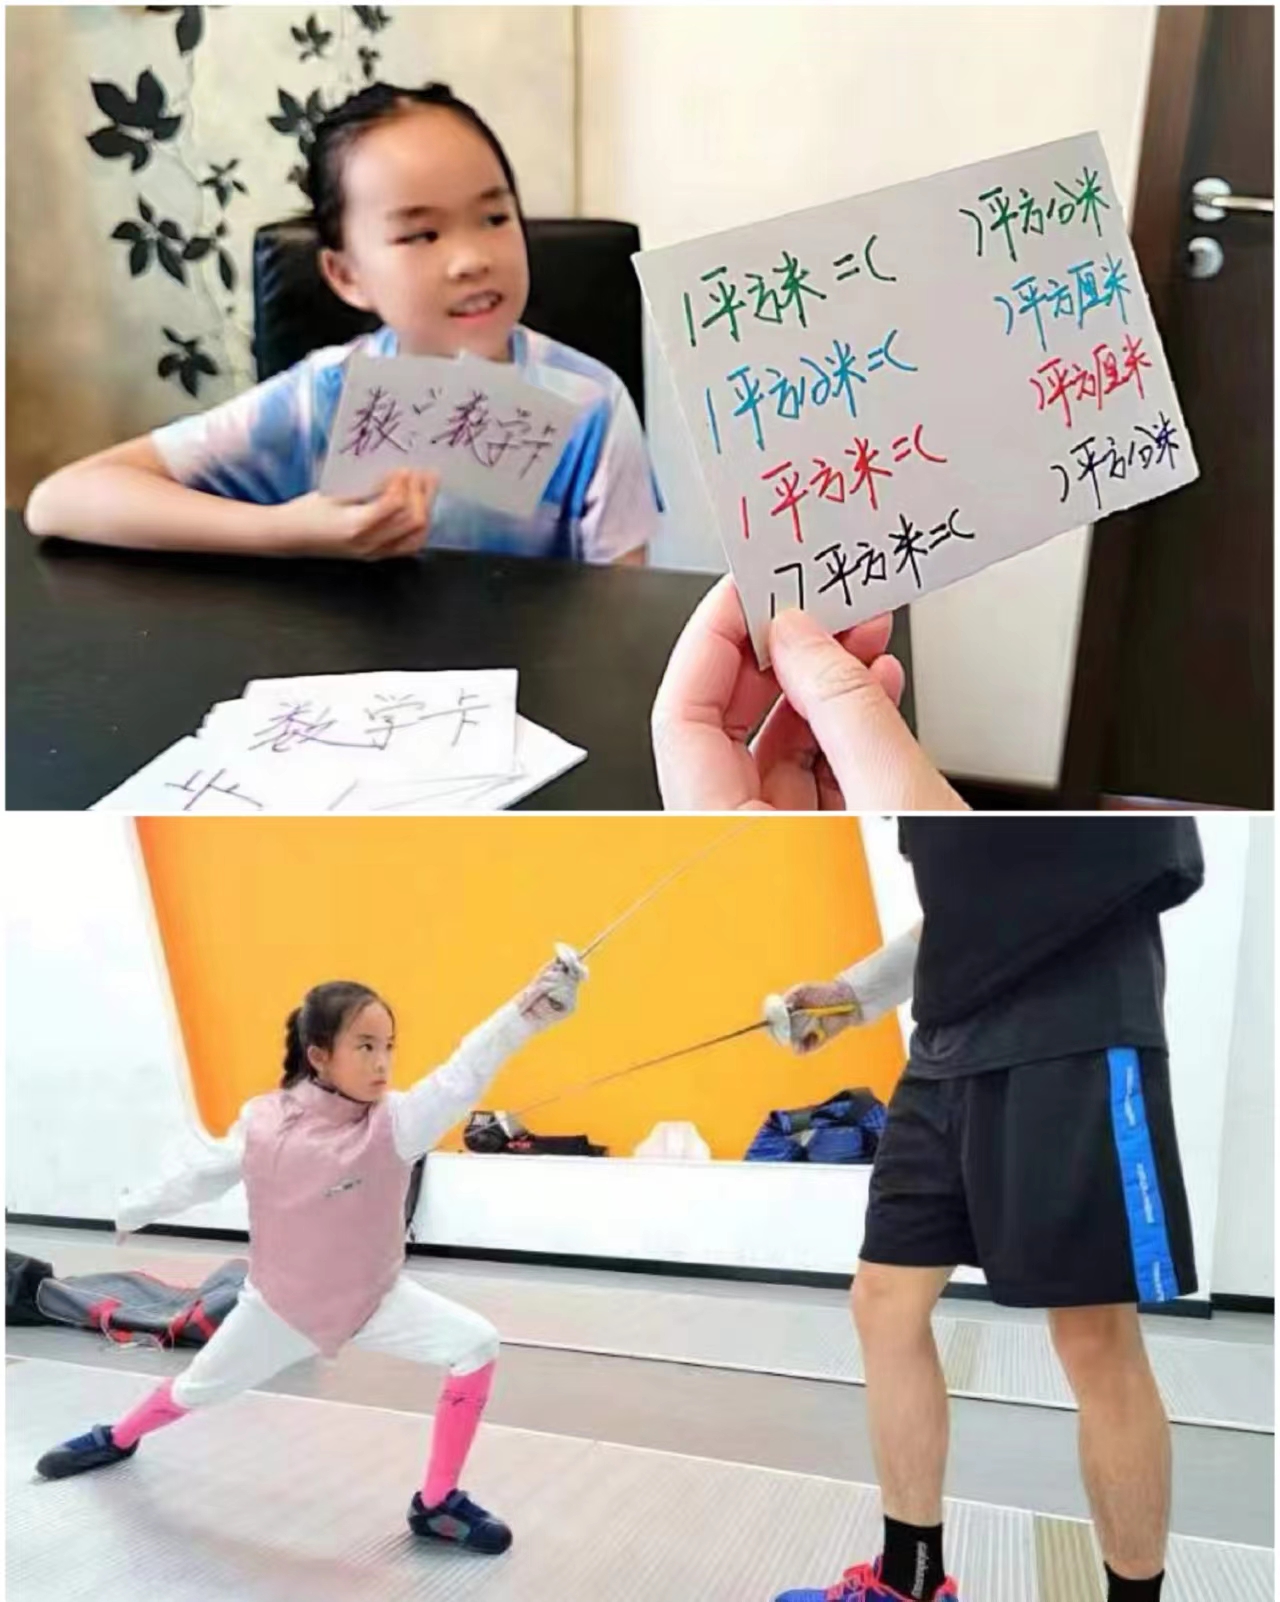 1平方米=( )平方分米
1平方分米=( )平方厘米
1平方米=( )平方厘米
17平方米=( )平方分米
数学卡
数学卡